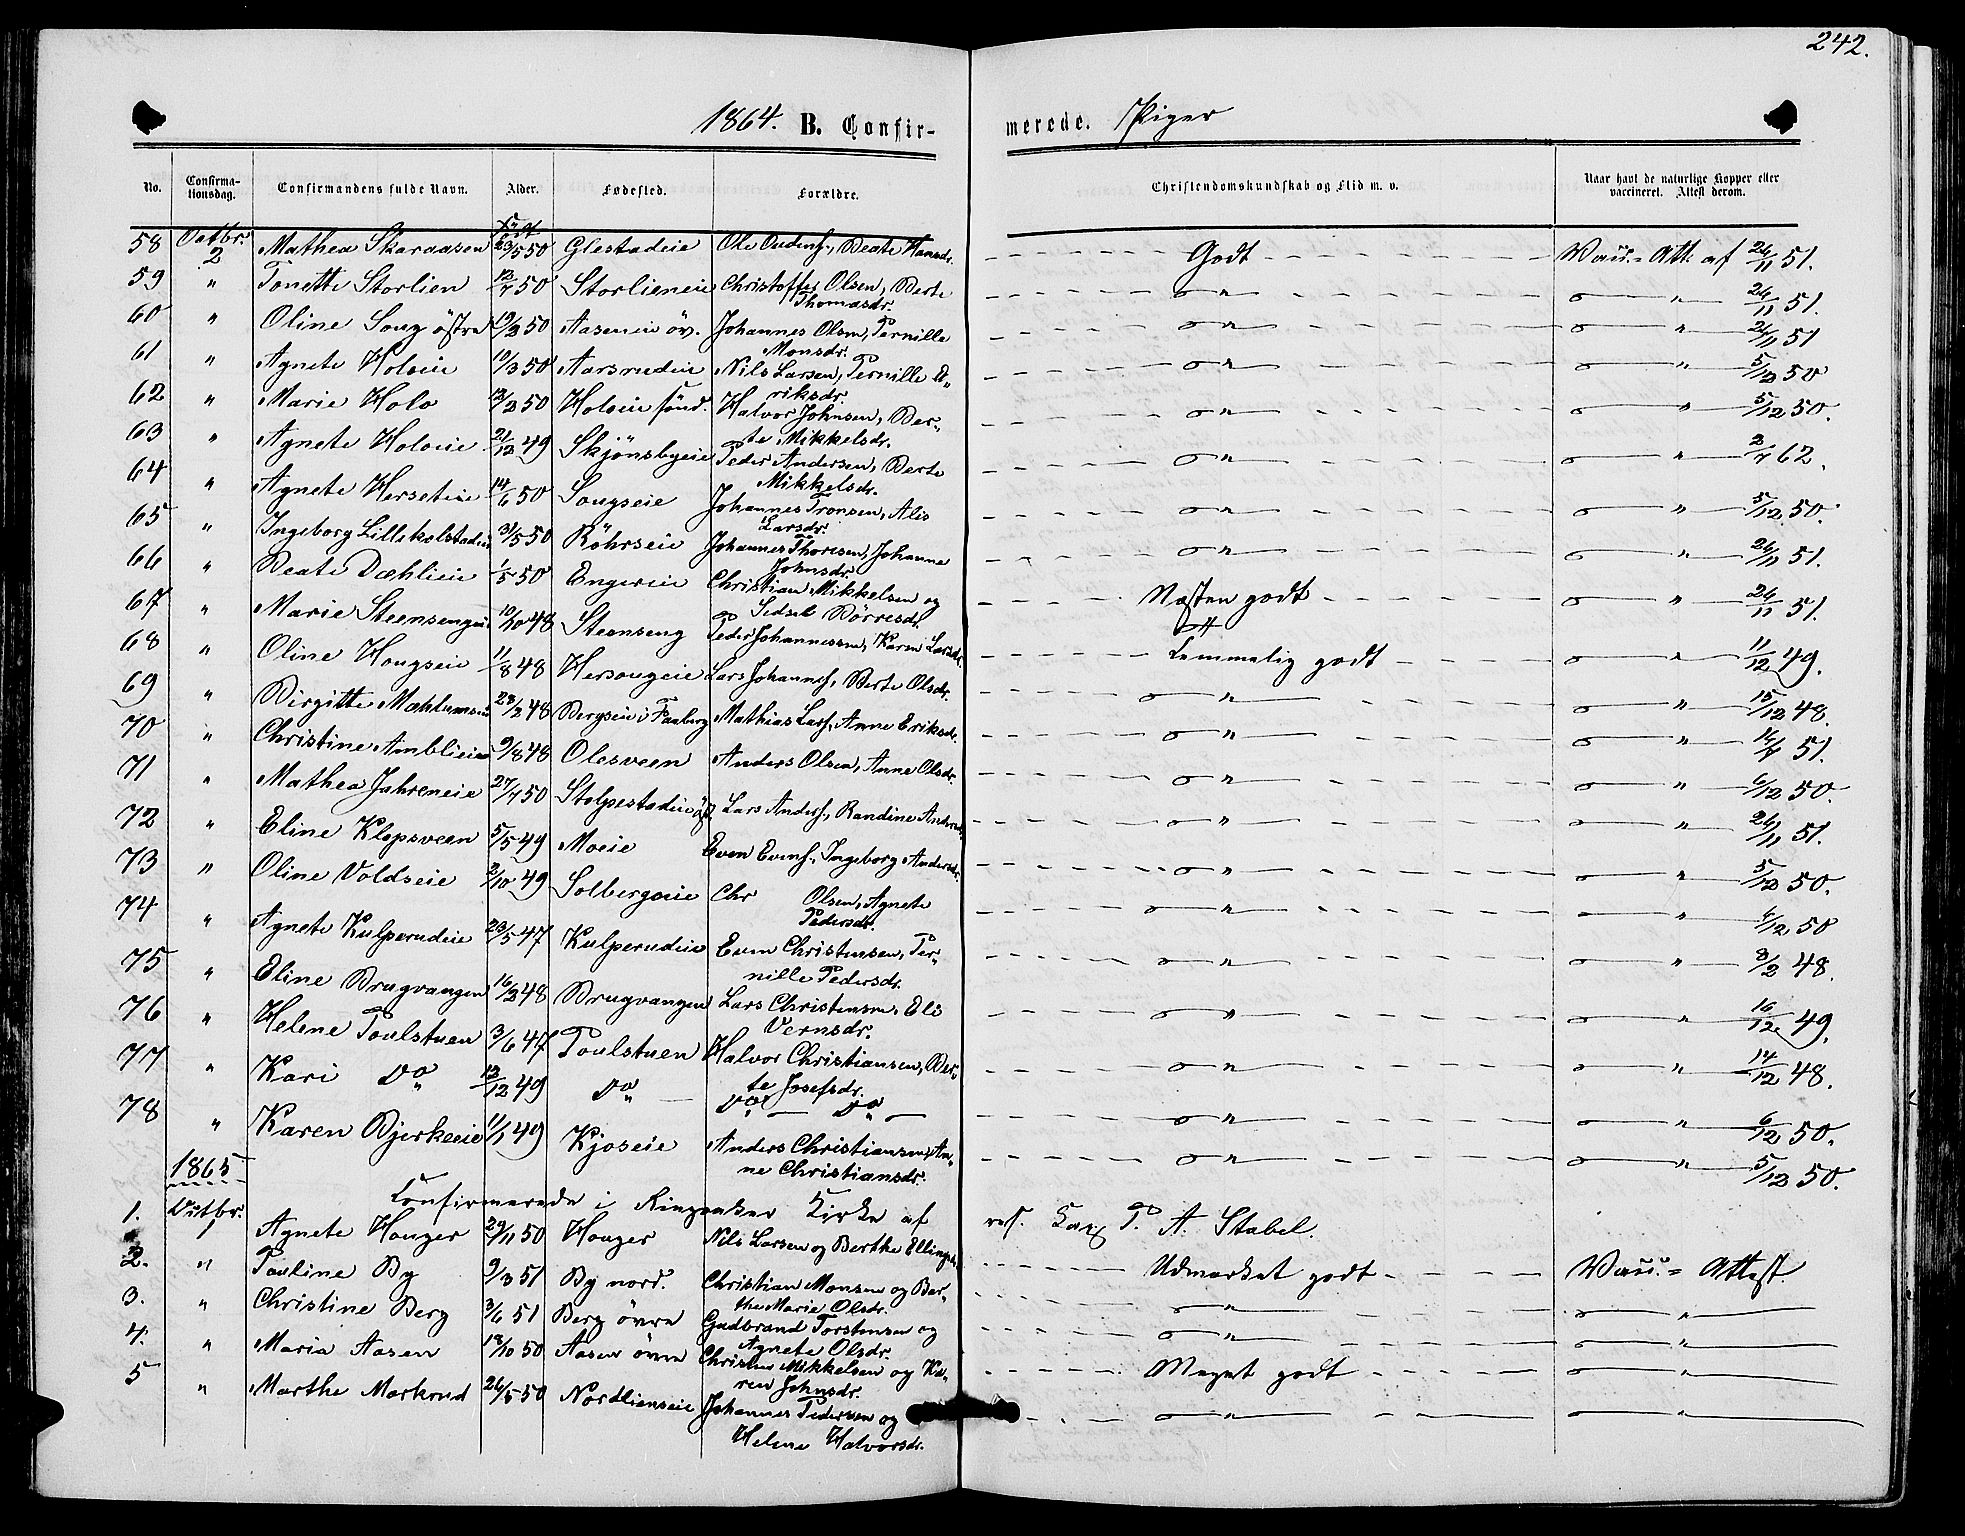 242.
1864. B. Confirmerede. Piger
No. Confirmationsdag. Confirmandens fulde Navn. Alder. Fødested. Forældre. Christendomskundskab og Flid m. v. Naar havt de naturlige Kopper eller vaccineret. Attest derom.
Født
58 Octbr. 2 Mathea Skaraasen 23/5 50 Glestadeie Ole Endersf., Beate Hansdr. Godt Vacc.- Att. af 26/11 51.
59 " Tonette Storlien 12/7 50 Storlieneie Christoffer Olsen, Berte Thomasdr. " " 26/11 51.
60 " Oline Soug östra 19/2 50 Aaseneie öv. Johannes Olsen, Pernille Monsdr. " " 26/11 51
61 " Agnete Holoeie 10/3 50 Aarsrudeie Nils Larsen, Pernille Eriksdr. " " 5/12 50
62 " Marie Holo 12/2 50 Holoeie sönd. Halvor Johnsen, Berte Mikkelsdr. " " 5/12 50.
63 " Agnete Holoeie 21/12 49 Skjönsbyeie Peder Andersen, Berte Mikkelsdr. " " 2/7 62.
64 " Agnete Herseteie 14/6 50 Sougseie Johannes Tronsen, Alis Larsdr. " " 5/12 50.
65 " Ingeborg Lillekolstadeie 31/5 50 Röhrseie Johannes Thoresen, Johanne Johnsdr. " " 26/11 51.
66 " Beate Dæhlieie 1/5 50 Engereie Christian Mikkelsen og Sidsel Börresdr. Næsten godt " 26/11 51.
67 " Marie Steensengeie 10/10 48 Steenseng Peder Johannessen, Karen Larsdr. Temmelig godt " 11/12 49.
68 " Oline Hougseie 11/8 48 Hersougeie Lars Johannesf., Berte Olsdr. " " 15/12 48.
69 " Birgitte Mæhlumseie 23/2 48 Bergseie i Faaberg Mathias Larsf., Anne Eriksdr. " " 14/7 51.
70 " Christine Amblieie 9/8 48 Olesveen Anders Olsen, Anne Olsdr. " " 6/12 50.
71 " Mathea Jahreneie 27/7 50 Stolpestadeie öst Lars Andersf., Randine Andersdr. " " 26/11 51.
72 " Eline Klopsveen 5/5 49 Moeie Even Evensf., Ingeborg Andersdr. " " 5/12 50.
73 " Oline Voldseie 2/10 49 Solbergeie Chr Olsen, Agnete Pedersdr. " " 6/12 50
74 " Agnete Kulperudeie 23/5 47 Kulperudeie Even Christensen, Pernille Pedersdr. " " 3/2 48.
75 " Eline Brugvangen 16/2 48 Brugvangen Lars Christensen, Elis Vernsdr. " " 16/12 49.
76 " Helene Poulstuen 3/6 47 Poulstuen Halvor Christiansen, Berte Josefsdr. " " 14/12 48.
77 " Kari Do 12/12 49 Do Do Do " " 6/12 50.
78 " Karen Bjerkeeie 11/1 49 Kjoseie Anders Christiansen, Anne Christiansdr. " " 5/12 50.
1865
Confirmerede i Ringsaker Kirke af res. Cap. P. A. Stabel.
1. Octbr. 1 Agnete Houger 29/11 50 Houger Nils Larsen og Berthe Ellingsdr. Udmærket godt Vacc.- Attest
2. " Pauline By 9/3 51 By nord. Christian Monsen og Berthe Marie Olsdr. " "
3. " Christine Berg 3/6 51 Berg övre Gudbrand Torstensen og Agnete Olsdr. " "
4. " Maria Aasen 18/10 50 Aasen övre Christen Mikkelsen og Karen Johnsdr. Meget godt "
5 " Marthe Markrud 26/5 50 Nordlienseie Johannes Pedersen og Helene Halvorsdr. " "